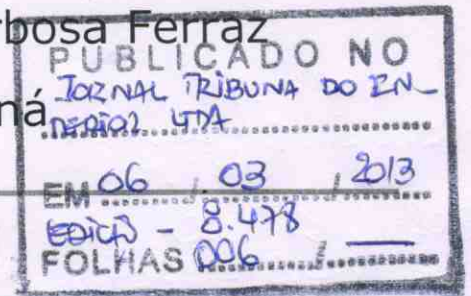 rbosa Ferraz
ná
PUBLICADO NO
JORNAL TRIBUNA DO IN
TERIOR LTDA
EM 06 / 03 / 2013
EDIÇÃO - 8.478
FOLHAS 006 / —